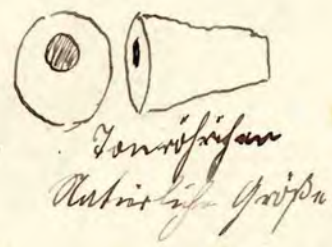 Tonröhrchen
Natürliche Größe